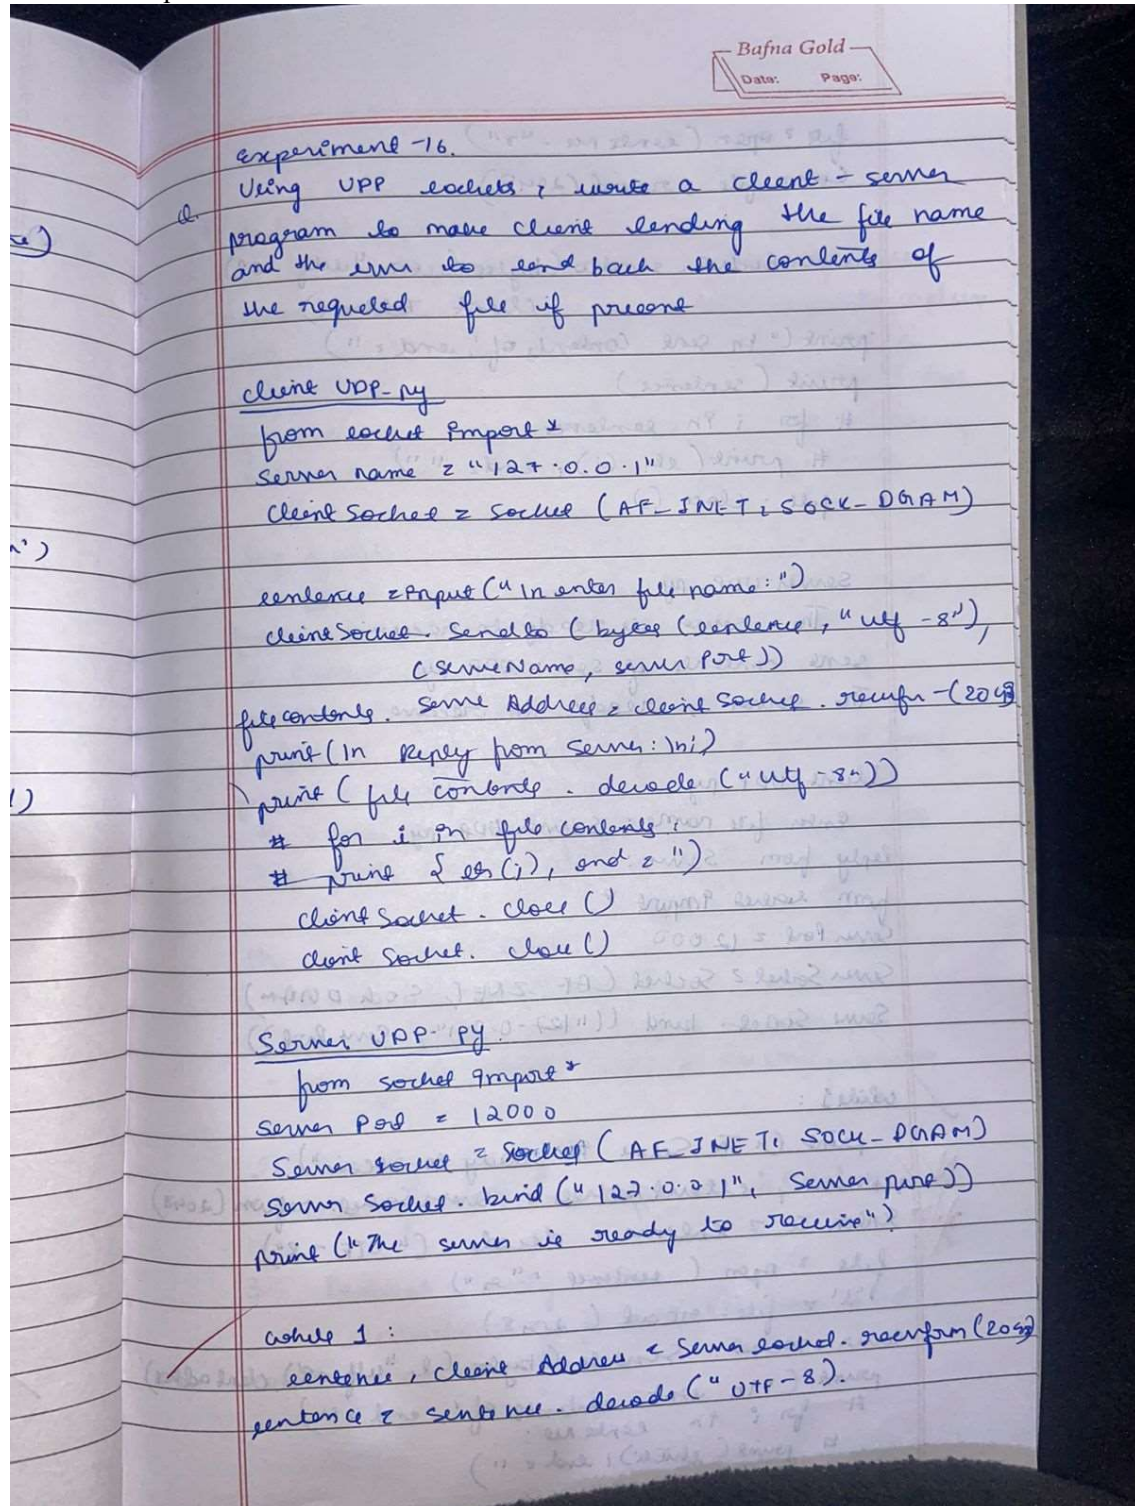 Bafna Gold
Date: Page:
Experiment -16.
Q. Using UDP sockets, write a client - server
program to make client sending the file name
and the server to send back the contents of
the requested file if present
client UDP-py
from socket import *
Server name = "127.0.0.1"
Client Socket = Socket (AF_INET, SOCK_DGRAM)
sentence = Input ("\n enter file name: ")
clientSocket. Sendto (bytes (sentence, "utf -8"),
(serverName, server Port))
filecontents. Server Address = client Socket . recvfr -(2048
print (\n Reply from Server: \n;)
print ( file contents . decode ("utf -8"))
# for i in file contents :
# print
client Socket . close ()
client Socket. close ()
Server UDP- py
from socket import *
Server Port = 12000
Server socket = Socket ( AF_INET, SOCK_DGRAM)
Server Socket. bind ("127.0.0 1", Server port))
print ("The server is ready to receive")
while 1 :
sentence, client Address = Server socket. recvfrm (2048)
sentence = sentence. decode (" UTF - 8).